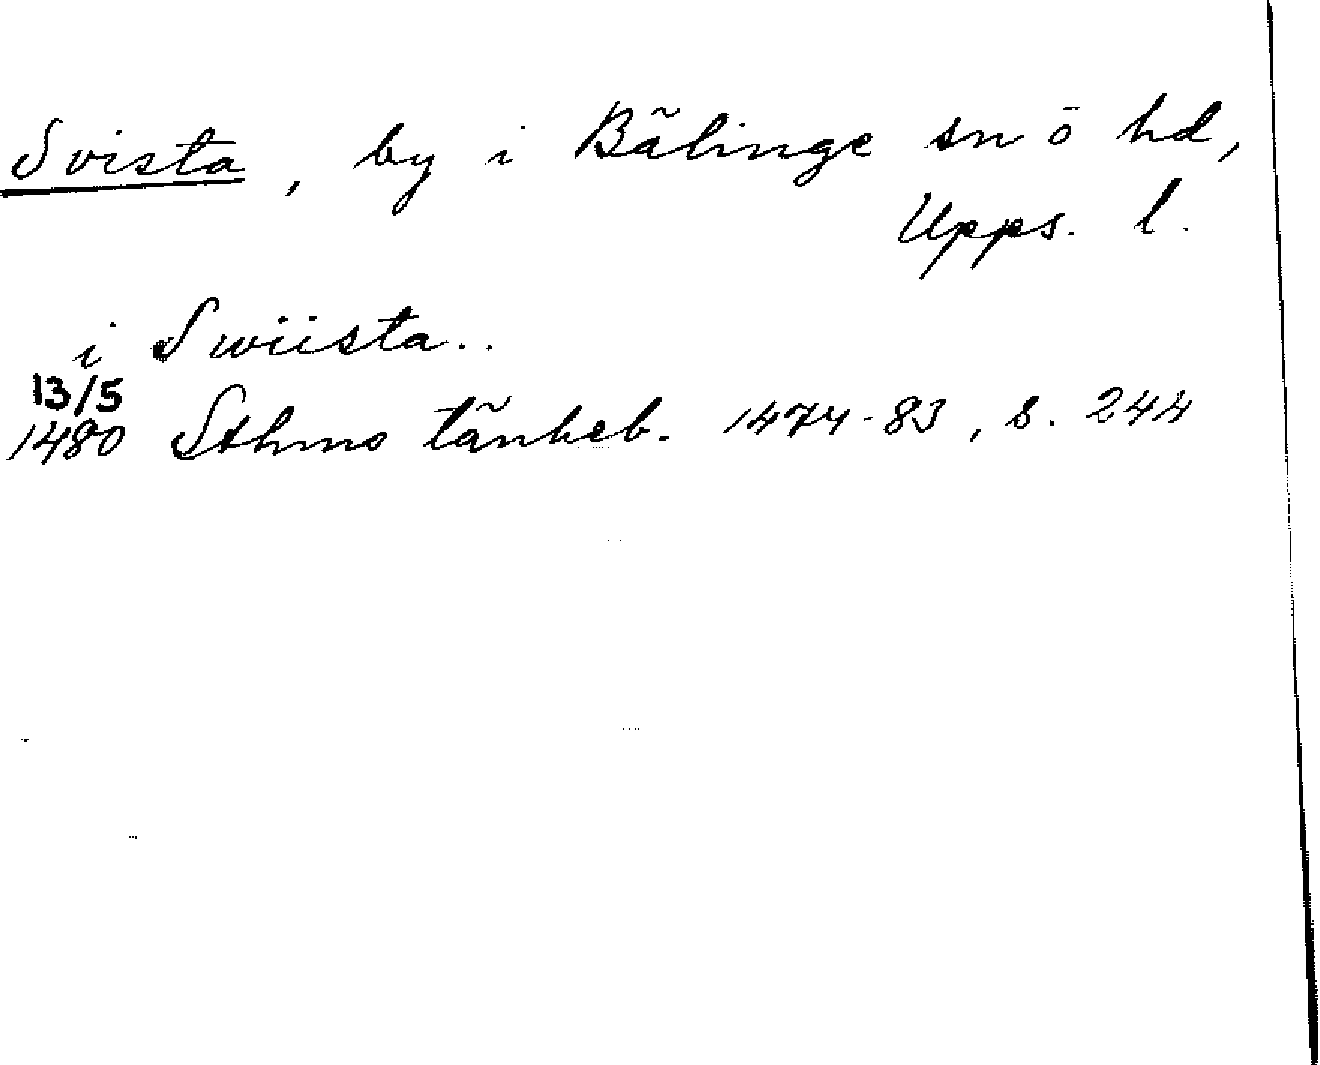 Svista, by i Bälinge sn o hd,
Upps. l.
i Swiista..
13/5
1480 Sthms tänkeb. 1474-83, s. 244